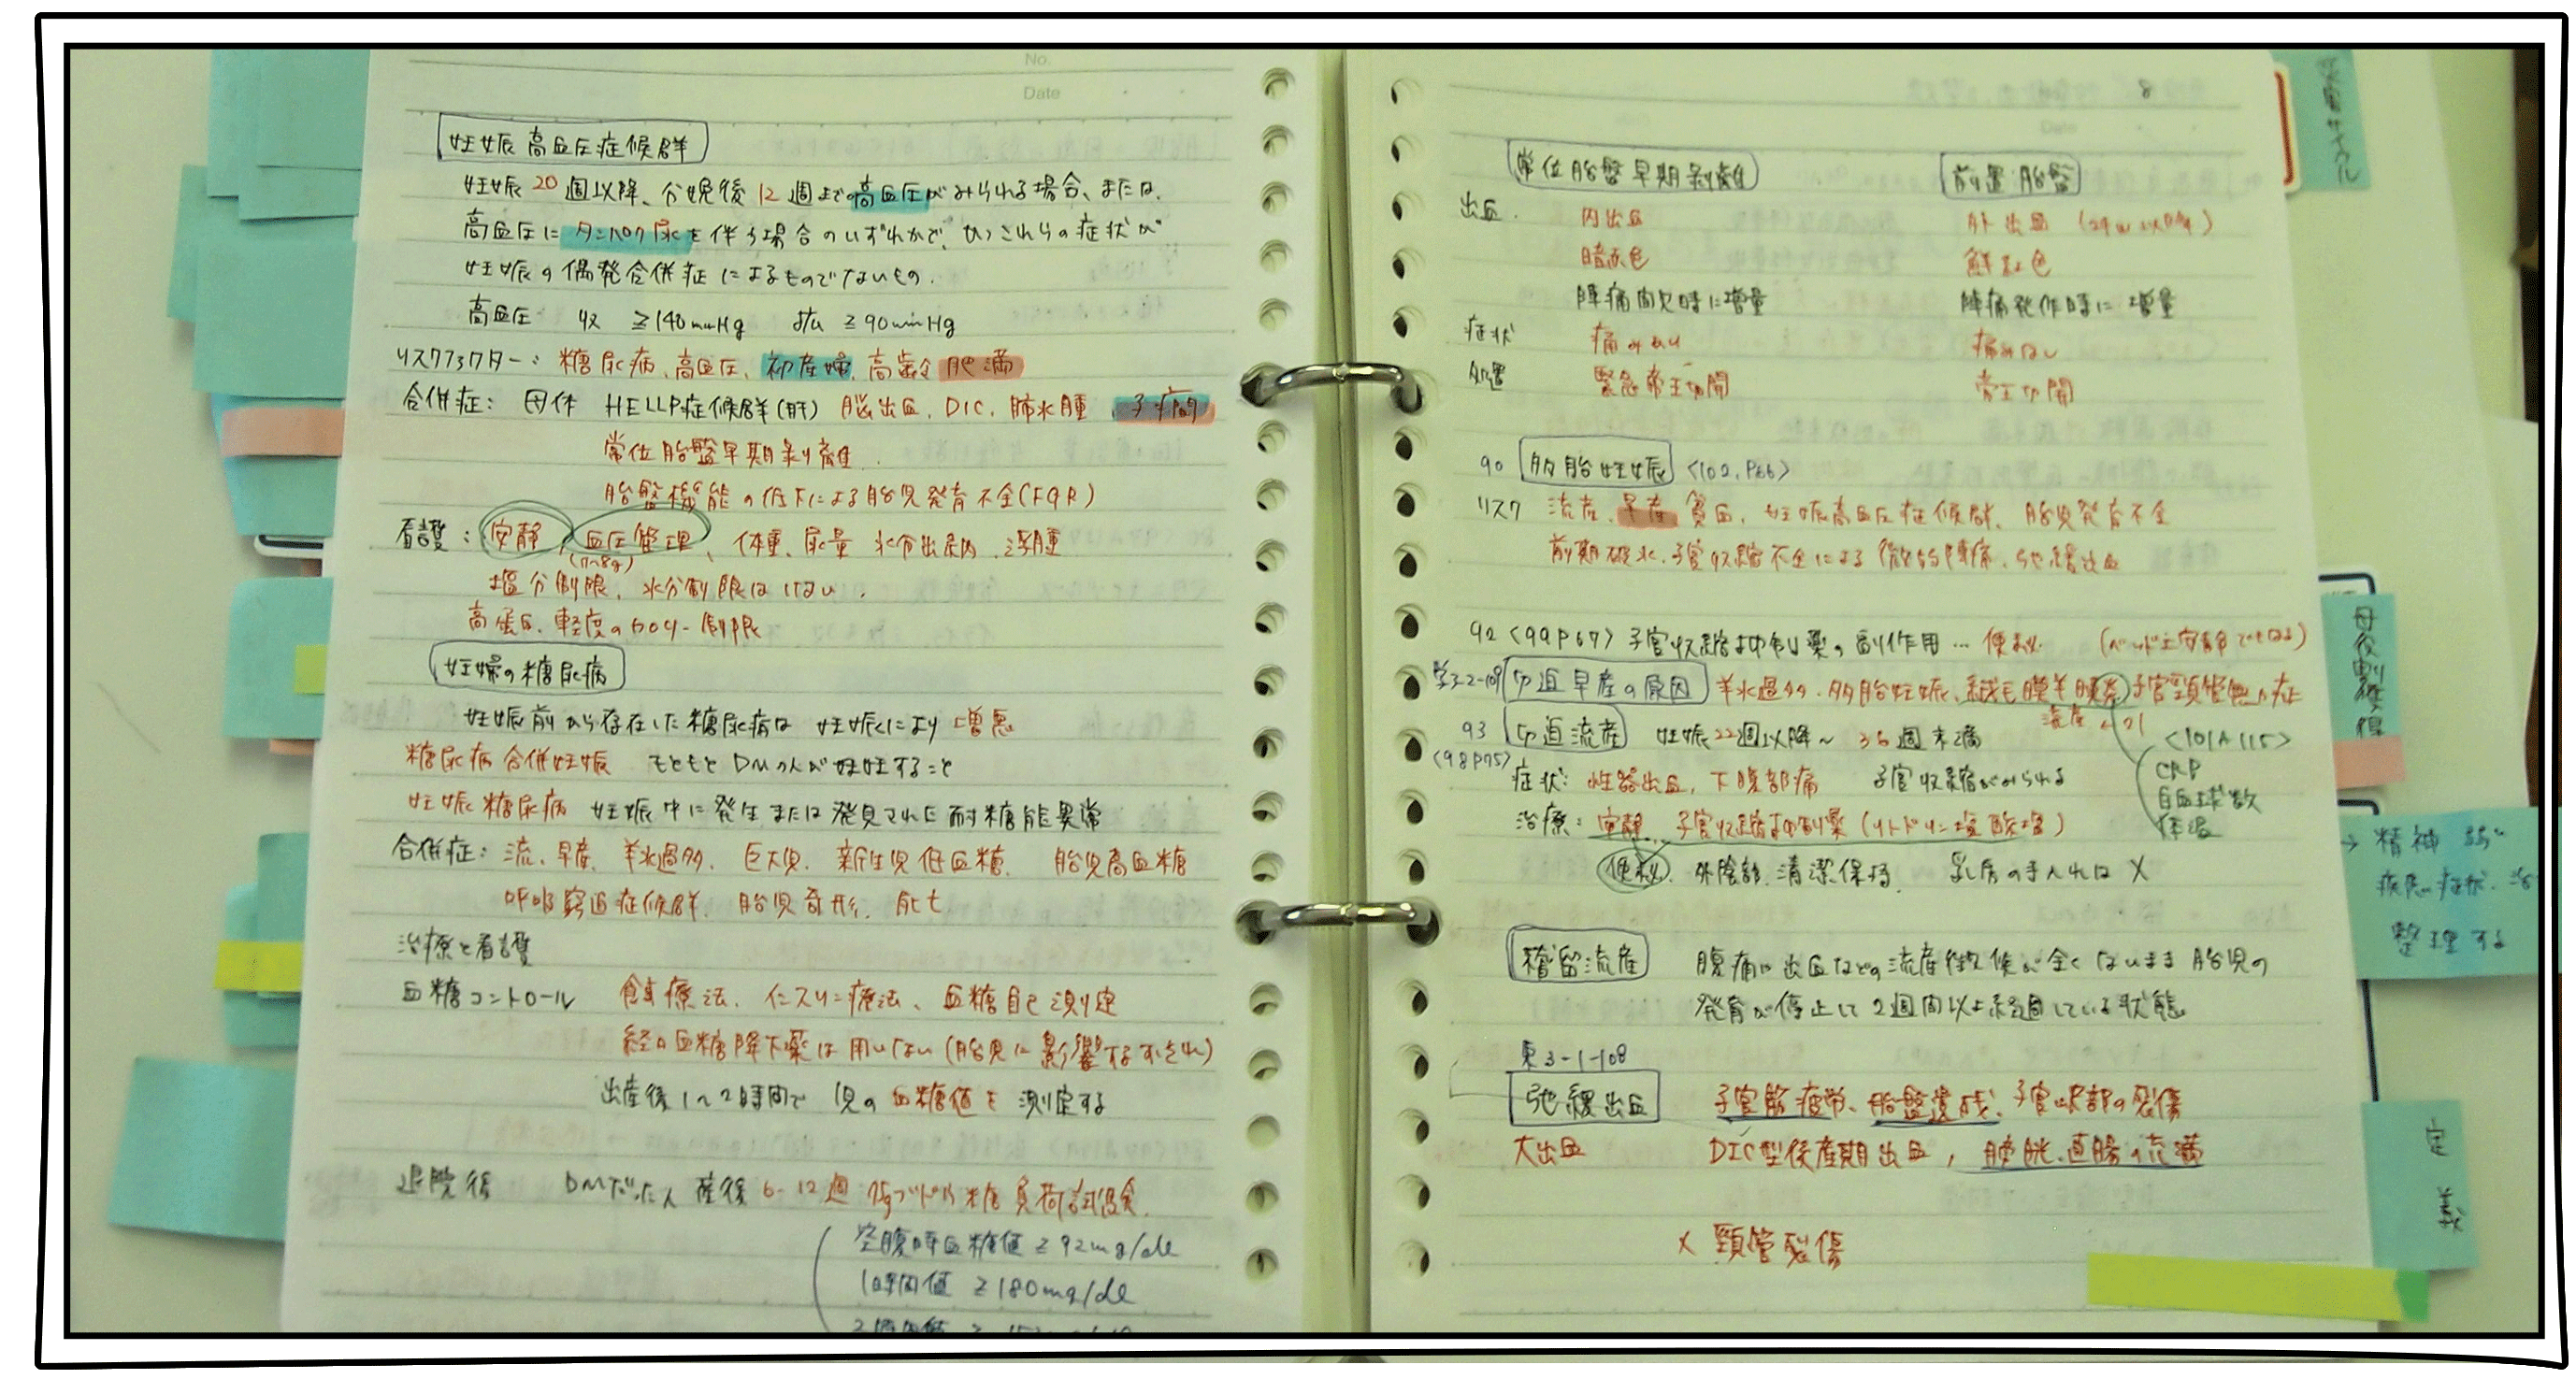 No.
Date
妊娠高血圧症候群
妊娠20週以降、分娩後12週までの高血圧がみられる場合、または、
高血圧にタンパク尿を伴う場合のいずれかで、かつこれらの症状が
妊娠の偶発合併症によるものでないもの.
高血圧 収 ≧140mmHg ≧90mmHg
リスクファクター: 糖尿病、高血圧、初産婦、高齢 肥満
合併症: 母体 HELLP症候群(肝) 脳出血、DIC、肺水腫、子癇
常位胎盤早期剥離
胎盤機能の低下による胎児発育不全(FGR)
看護: 安静、血圧管理、体重、尿量 水分出納、浮腫
(7~8g)
塩分制限、水分制限はしない.
高蛋白、軽度のカロリー制限
妊婦の糖尿病
妊娠前から存在した糖尿病は 妊娠により増悪
糖尿病合併妊娠 もともとDMの人が妊娠すること
妊娠糖尿病 妊娠中に発生または発見された耐糖能異常
合併症: 流、早産、羊水過多、巨大児、新生児低血糖、胎児高血糖
呼吸窮迫症候群、胎児奇形、死亡
治療と看護
血糖コントロール 食事療法、インスリン療法、血糖自己測定
経口血糖降下薬は用いない(胎児に影響するおそれ)
出産後1~2時間で 児の血糖値を測定する
退院後 DMだった人 産後6-12週 75gブドウ糖負荷試験
空腹時血糖値≧92mg/dl
1時間値 ≧180mg/dl
8
常位胎盤早期剥離 前置胎盤
出血. 内出血 外出血 (29w以降)
暗赤色 鮮紅色
陣痛間欠時に増量 陣痛発作時に増量
症状 痛みあり 痛みなし
処置 緊急帝王切開 帝王切開
90 多胎妊娠 <102、P66>
リスク 流産、早産 貧血、妊娠高血圧症候群、胎児発育不全
前期破水、子宮収縮不全による微弱陣痛、弛緩出血
92 <99P67> 子宮収縮抑制薬の副作用… 便秘 (ベッド上安静でもなる)
3-2-109 切迫早産の原因 羊水過多、多胎妊娠、絨毛膜羊膜炎 子宮頸管無力症
93 切迫流産 妊娠22週以降~36週末満
<98P75>
<101A115>
CRP
白血球数
体温
症状: 性器出血、下腹部痛 子宮収縮がみられる
治療: 安静、子宮収縮抑制薬(リトドリン塩酸塩)
便秘、外陰部、清潔保持、乳房の手入れは×
稽留流産 腹痛や出血などの流産徴候が全くないまま胎児の
発育が停止して2週間以上経過している状態
東3-1-108
弛緩出血 子宮筋疲労、胎盤遺残、子宮峡部の裂傷
大出血 DIC型後産期出血, 膀胱、直腸の充満
× 頸管裂傷
精神
疾患、症状、
整理する
定義